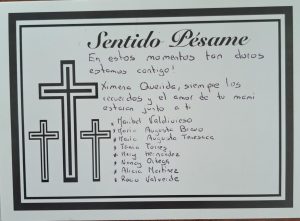 Sentido Pésame
En estos momentos tan duros
estamos contigo!
Ximena Querida, siempre los
recuerdos y el amor de tu mami
estaran junto a ti
* Maribel Valdivieso
* Maria Augusta Bravo
* Maria Augusta
* Tania Torres
* Mery Hernández
* Nancy Ortega
* Alicia Martinez
* Rocio Valverde